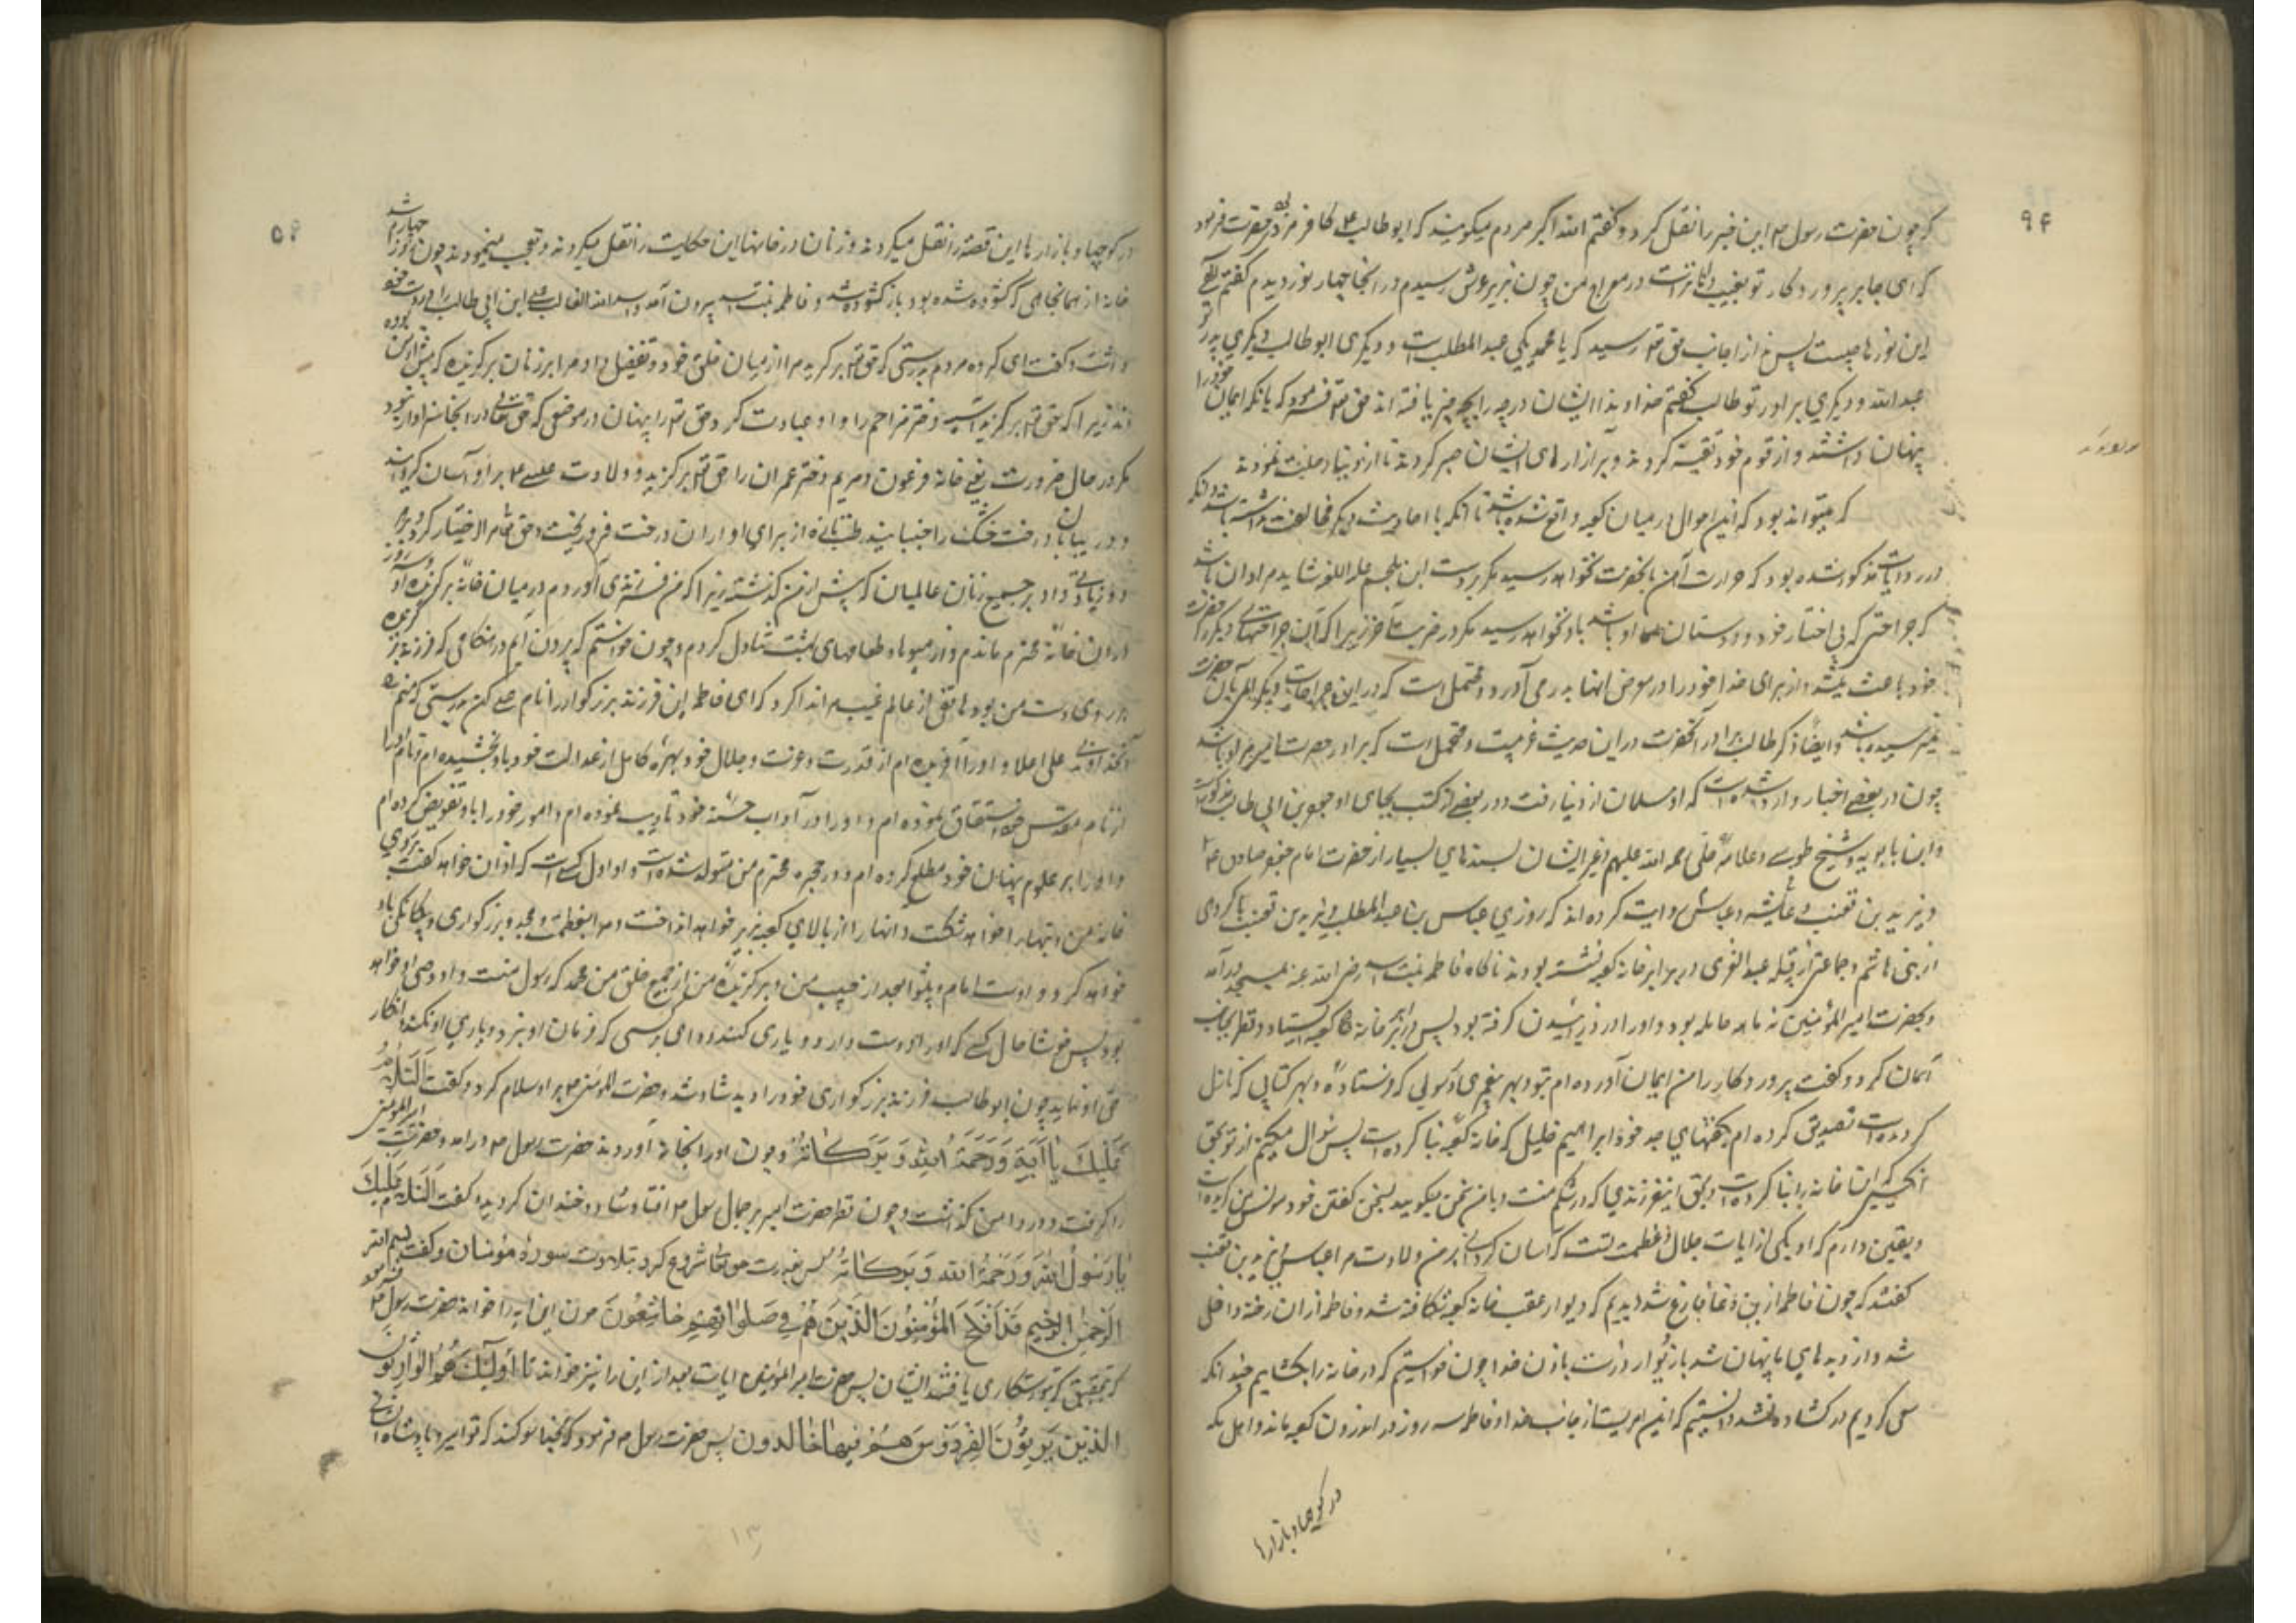 ۹۴
که چون حضرت رسول ص این خبر را نقل کرد و گفتم الله اکبر مردم میگویند که ابو طالب ع کافر مرد حضرت فرمود
که ای جابر پرورد کار تو بغیب داناتر است در معراج من چون بزیر عرش رسیدم در انجا چهار نور دیدم گفتم الهی
این نورها چیست پس از جانب حق تع رسید که یا محمد یکی عبد المطلب است و دیگری ابو طالب و دیگری پدر تو
عبد الله و دیگری برادر تو طالب گفتم خداوندا ایشان درجه را بچه چیز یافته اند حق تع فرمود که بانکه ایمان خود را
پنهان داشتند و از قوم خود تقیه کردند و بر آزارهای ایشان صبر کردند تا از دنیا رحلت نمودند
که میتواند بود که این احوال در میان کعبه واقع شده باشد تا آنکه با احادیث دیگر مخالفت نداشته باشد و آنکه
در روایت مذکور شده بود که حرارت آهن بانحضرت نخواهد رسید مگر بر دست ابن ملجم علیه اللعنه شاید مراد ان باشد
که جراحتی که بی اختیار خود و دوستان او باشد باو نخواهد رسید مگر در ضربت آخر زیرا که آن جراحتهای دیگر که حضرت
خود باعث میشد و از برای خدا خود را در معرض انها بدر می آورد و محتمل است که در این جراحات دیگر الم بآن حضرت
نمیرسیده باشد و ایضا ذکر طالب برادر آنحضرت در این حدیث غریبست و محتمل است که برادر حضرت امیر مراد باشد
چون در بعضی اخبار وارد شده است که او مسلمان از دنیا رفت و در بعضی از کتب بجای او جعفر بن ابی طالب مذکور است
و ابن بابویه و شیخ طوسی و علامه حلی رحمه الله علیهم و غیر ایشان بسندهای بسیار از حضرت امام جعفر صادق ع
و یزید بن قعنب و عایشه و عباس روایت کرده اند که روزی عباس بن عبد المطلب و یزید بن قعنب با گروهی
از بنی هاشم و جماعتی از قبیله عبد العزی در برابر خانه کعبه نشسته بودند ناگاه فاطمه بنت اسد رضی الله عنه بمسجد در آمد
و بحضرت امیر المؤمنین نه ماهه حامله بود و او را درد زائیدن گرفته بود پس در برابر خانه کعبه ایستاد و نظر بجانب
آسمان کرد و گفت پروردکارا من ایمان آورده ام بتو و بهر پیغمبری و رسولی که فرستاده و بهر کتابی که نازل
کرده است تصدیق کرده ام بگفتهای جد خود ابراهیم خلیل که خانه کعبه بنا کرده است پس سوال میکنم از تو بحق
انکسی که این خانه را بنا کرده است و بحق این فرزندی که در شکم منست و با من سخن میگوید و بسخن گفتن خود مونس من گردیده است
و یقین دارم که او یکی از ایات جلال و عظمت تست که آسان گردانی بر من ولادت مرا عباس و یزید بن قعنب
گفتند که چون فاطمه از این دعا فارغ شد دیدیم که دیوار عقب خانه کعبه شکافته شد و فاطمه از ان رخنه داخل
شد و از دیدهای ما پنهان شد باز دیوار درست باذن خدا چون خواستیم که در خانه را بکشاییم چندانکه
سعی کردیم در کشاده نشد دانستیم که این امریست از جانب خدا و فاطمه سه روز در اندرون کعبه ماند و اهل مکه
در کوچها و بازارها
در کوچها و بازارها این قصه را نقل میکردند و زنان در خانها این حکایت را نقل میکردند و تعجب مینمودند چون روز چهارم شد
خانه از همانجائی که گشوده شده بود باز گشوده شد و فاطمه بنت اسد بیرون آمد و اسد الله الغالب علی ابن ابی طالب را بر دست خود
داشت و گفت ای گروه مردم بدرستی که حق تع برگزید مرا از میان خلق خود و تفضیل داد مرا بر زنان برگزیده که پیش از من بوده
اند زیرا که حق تع برگزید آسیه دختر مزاحم را و او عبادت کرد حق تع را پنهان در موضعی که حق تعالی در انجا سزاوار نبود
مگر در حال ضرورت یعنی خانه فرعون و مریم دختر عمران را حق تع برگزید و ولادت عیسی ع بر او آسان گردانید
و در بیابان درخت خشک را جنبانید رطب تازه از برای او از ان درخت فرو ریخت و حق تع مرا اختیار کرد بر هر
دو زیادتی داد و بر جمیع زنان عالمیان که پیش از من گذشته زیرا که من فرزندی آوردم در میان خانه برگزیده او و سه روز
در ان خانه محترم ماندم و از میوها و طعامهای بهشت تناول کردم و چون خواستم که بیرون آیم در هنگامی که فرزند برگزیده
بر روی دست من بود هاتفی از عالم غیب مرا ندا کرد که ای فاطمه این فرزند بزرگوار را نام علی کن بدرستی که منم
خداوند علی اعلا و او را آفریده ام از قدرت و عزت و جلال خود و بهره کامل از عدالت خود باو بخشیده ام و نام او را
از نام مقدس خود اشتقاق نموده ام و او را در آداب حسنه خود تادیب نموده ام و امور خود را باو تفویض کرده ام
و او را بر علوم پنهان خود مطلع کرده ام و در حجره محترم من متولد شده است و او اول کسی است که اذان خواهد گفت بر روی
خانه من و بتها را خواهد شکست و انها را از بالای کعبه بزیر خواهد انداخت و مرا بعظمت و مجد و بزرگواری و یگانگی یاد
خواهد کرد و اوست امام و پیشوا بعد از حبیب من و برگزیده من از جمیع خلق من محمد که رسول منست و او وصی او خواهد
بود پس خوشا حال کسی که او را دوست دارد و یاری کند و وای بر کسی که فرمان او نبرد و یاری او نکند و انکار
حق او نماید چون ابو طالب فرزند بزرگواری خود را دید شاد شد و حضرت امیر المومنین ع بر او سلام کرد و گفت السلام
علیک یا ابه و رحمة الله و برکاته و چون او را بخانه آوردند حضرت رسول ص در امد و حضرت امیر المومنین
را گرفت و در دامن گذاشت و چون نظر حضرت امیر بر جمال رسول ص افتاد شاد و خندان گردید و گفت السلام علیک
یا رسول الله و رحمة الله و برکاته پس بقدرت حق تعالی شروع کرد بتلاوت سورهٔ مؤمنان و گفت بسم الله
الرحمن الرحیم قد افلح المؤمنون الذین هم فی صلواتهم خاشعون چون این ایه را خواند حضرت رسول ص فرمود
که بتحقیق که رستگاری یافتند ایشان پس حضرت امیر المؤمنین ایات بعد از این را نیز خواند تا اولئک هم الوارثون
الذین یرثون الفردوس هم فیها خالدون پس حضرت رسول ص فرمود که بخدا سوگند که تو امیر و پادشاه ایشانی
۱۳